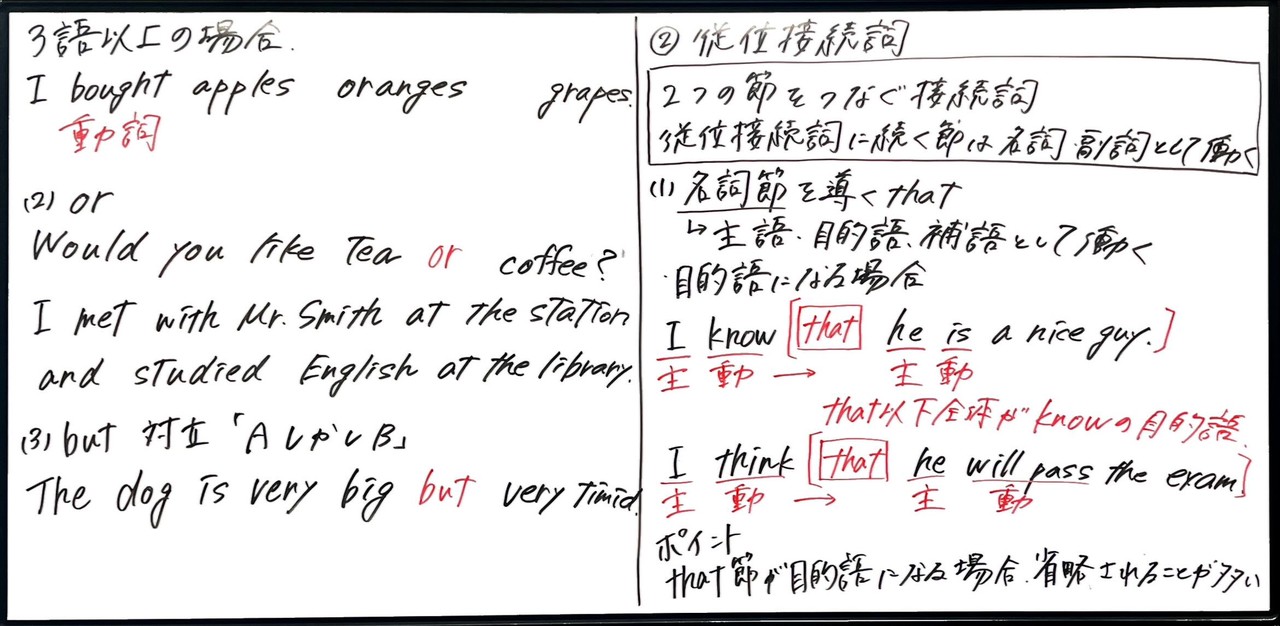 3語以上の場合.
I bought apples oranges grapes.
動詞
(2) or
Would you like Tea or coffee?
I met with Mr. Smith at the station
and studied English at the library.
(3) but 対立「AしかしB」
The dog is very big but very timid.
② 従位接続詞
2つの節をつなぐ接続詞
従位接続詞に続く節は名詞・副詞として働く
(1) 名詞節を導くthat
↳主語・目的語、補語として働く
・目的語になる場合
I know [that he is a nice guy.]
主 動 → 主 動
that以下全体がknowの目的語.
I think [that he will pass the exam.]
主 動 → 主 動
ポイント
that節が目的語になる場合、省略されることが多い